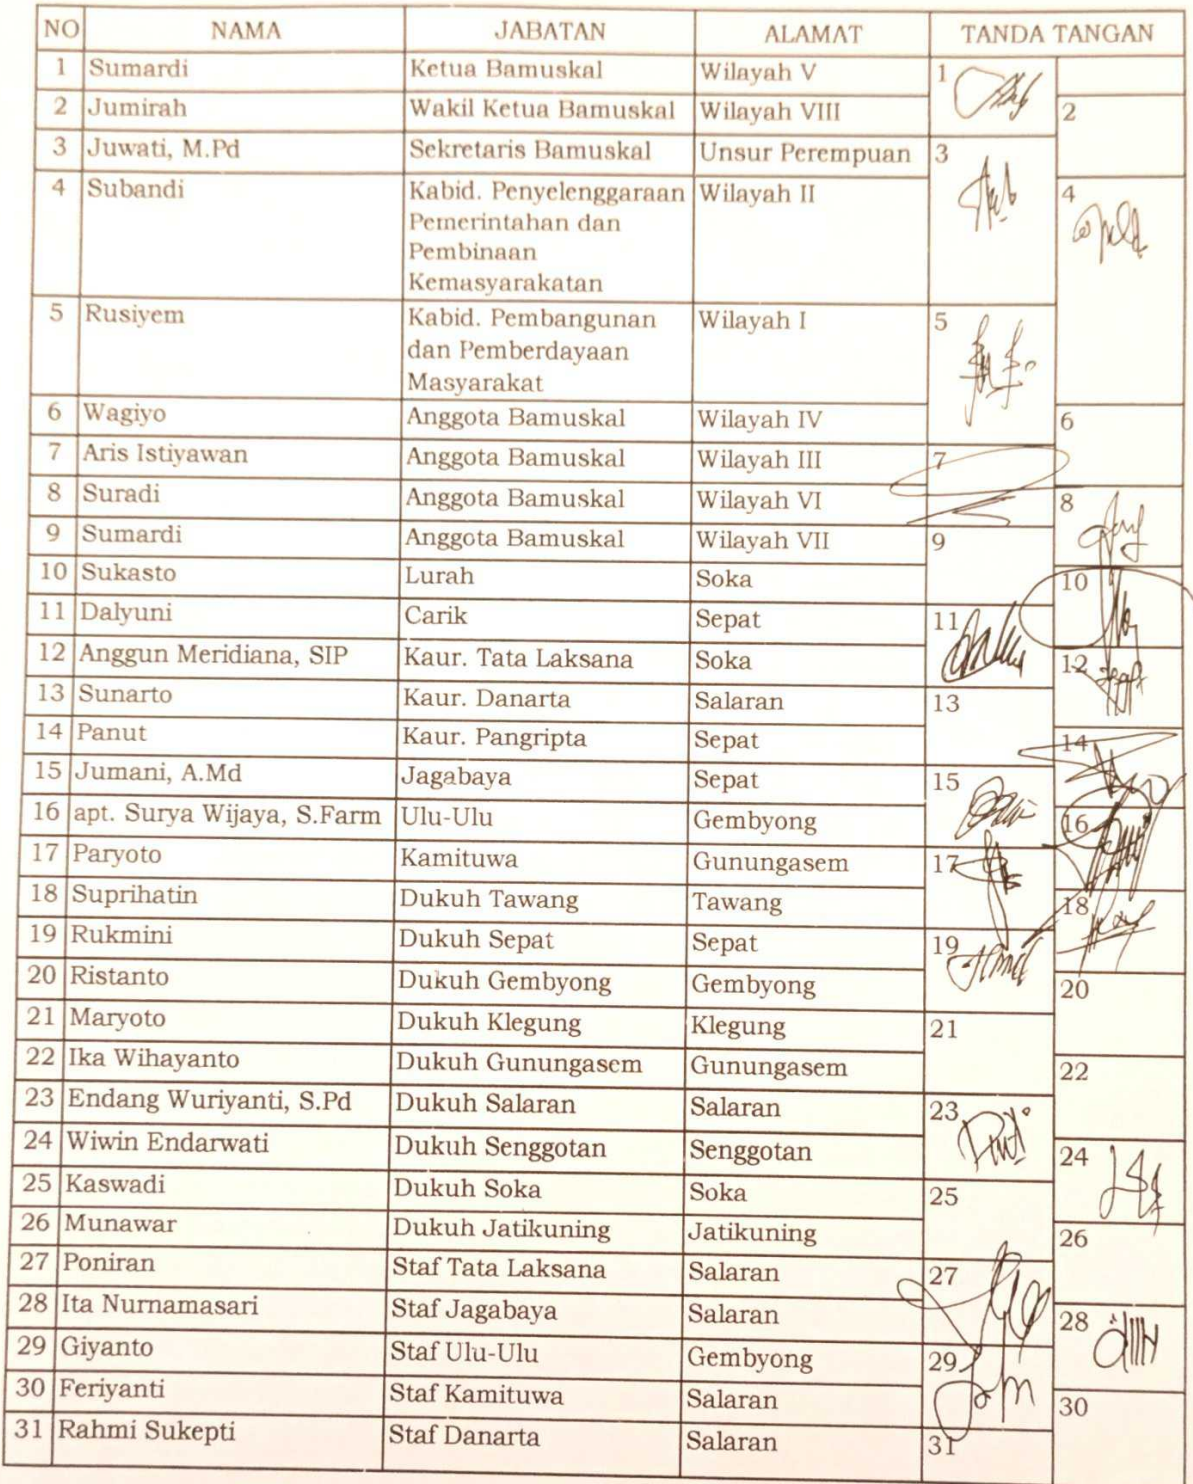 NO NAMA JABATAN ALAMAT TANDA TANGAN
1 Sumardi Ketua Bamuskal Wilayah V 1
2 Jumirah Wakil Ketua Bamuskal Wilayah VIII 2
3 Juwati, M.Pd Sekretaris Bamuskal Unsur Perempuan 3
4 Subandi Kabid. Penyelenggaraan Wilayah II 4
Pemerintahan dan
Pembinaan
Kemasyarakatan
5 Rusiyem Kabid. Pembangunan Wilayah I 5
dan Pemberdayaan
Masyarakat
6 Wagiyo Anggota Bamuskal Wilayah IV 6
7 Aris Istiyawan Anggota Bamuskal Wilayah III 7
8 Suradi Anggota Bamuskal Wilayah VI 8
9 Sumardi Anggota Bamuskal Wilayah VII 9
10 Sukasto Lurah Soka 10
11 Dalyuni Carik Sepat 11
12 Anggun Meridiana, SIP Kaur. Tata Laksana Soka 12
13 Sunarto Kaur. Danarta Salaran 13
14 Panut Kaur. Pangripta Sepat 14
15 Jumani, A.Md Jagabaya Sepat 15
16 apt. Surya Wijaya, S.Farm Ulu-Ulu Gembyong 16
17 Paryoto Kamituwa Gunungasem 17
18 Suprihatin Dukuh Tawang Tawang 18
19 Rukmini Dukuh Sepat Sepat 19
20 Ristanto Dukuh Gembyong Gembyong 20
21 Maryoto Dukuh Klegung Klegung 21
22 Ika Wihayanto Dukuh Gunungasem Gunungasem 22
23 Endang Wuriyanti, S.Pd Dukuh Salaran Salaran 23
24 Wiwin Endarwati Dukuh Senggotan Senggotan 24
25 Kaswadi Dukuh Soka Soka 25
26 Munawar Dukuh Jatikuning Jatikuning 26
27 Poniran Staf Tata Laksana Salaran 27
28 Ita Nurnamasari Staf Jagabaya Salaran 28
29 Giyanto Staf Ulu-Ulu Gembyong 29
30 Feriyanti Staf Kamituwa Salaran 30
31 Rahmi Sukepti Staf Danarta Salaran 31